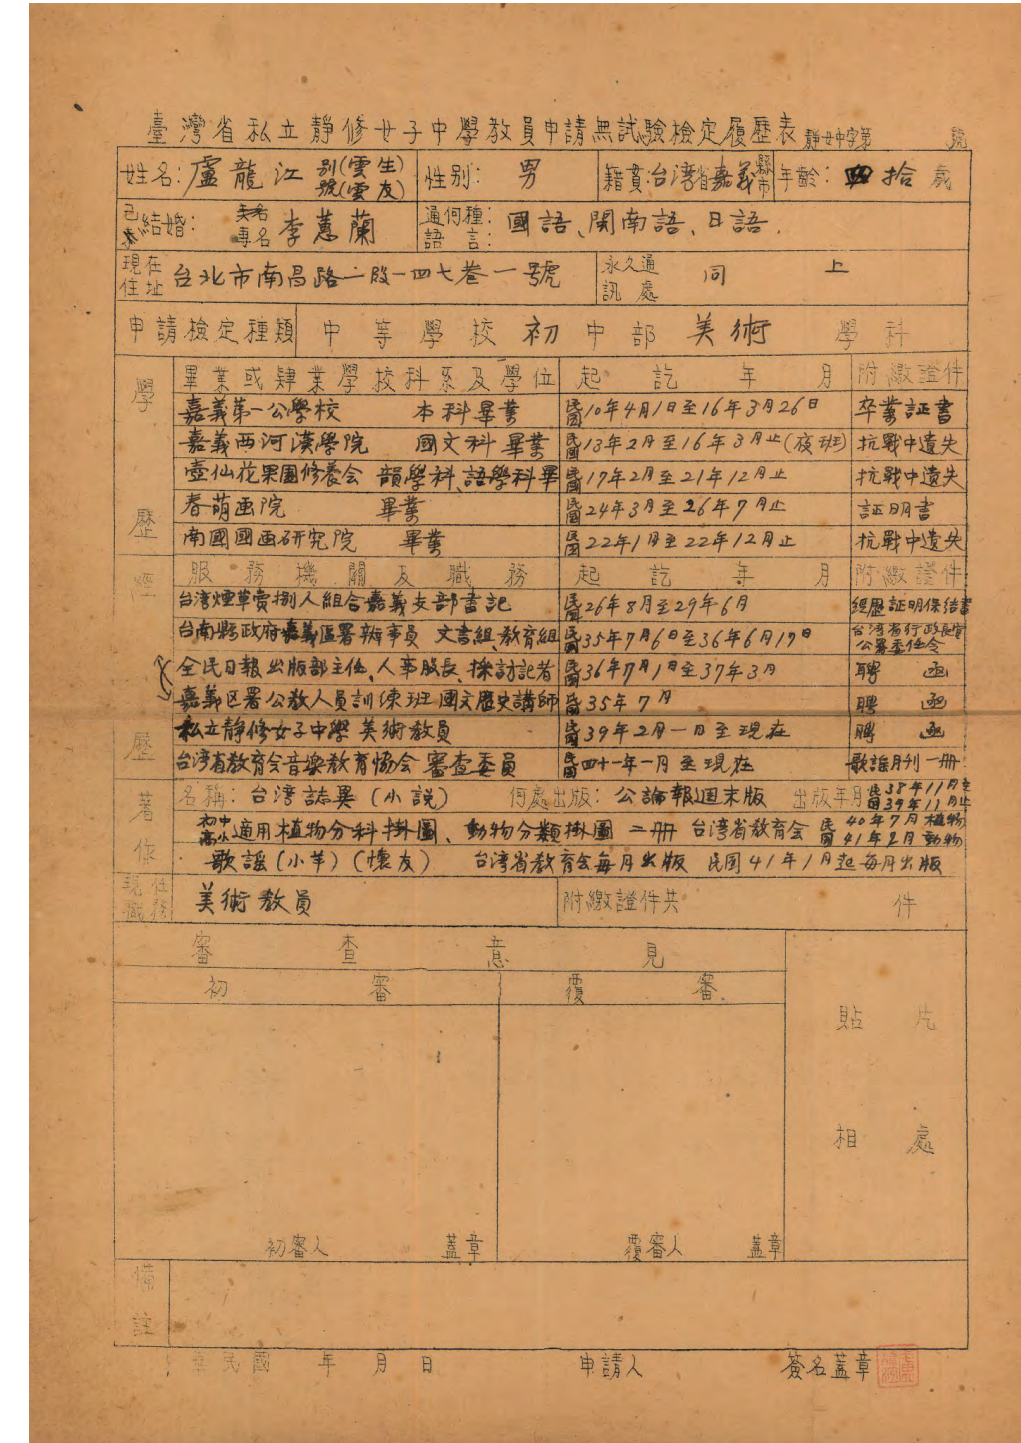 臺灣省私立靜修女子中學教員申請無試驗檢定履歷表 靜女中字第 號
姓名：盧龍江 別(雲生) 號(雲友) 性別： 男 籍貫：台湾省嘉義縣市 年齡： 四拾歲
已未結婚： 夫名 妻名 李蕙蘭 通何種語言： 國語、閩南語、日語.
現在住址 台北市南昌路二段一四七巷一號 永久通訊處 同 上
申請檢定種類 中等學校初中部美術學科
學歷
畢業或肄業學校科系及學位 起訖年月 附繳證件
嘉義第一公學校 本科畢業 民國10年4月1日至16年3月26日 卒業証書
嘉義西河漢學院 國文科畢業 民國13年2月至16年3月止(夜班) 抗戰中遺失
壺仙花果園修養会 韻學科、語學科畢 民國17年2月至21年12月止 抗戰中遺失
春萌画院 畢業 民國24年3月至26年7月止 証明書
南國國画研究院 畢業 民國22年1月至22年12月止 抗戰中遺失
經歷
服務機關及職務 起訖年月 附繳證件
台湾煙草賣捌人組合嘉義支部書記 民國26年8月至29年6月 經歷証明保結書
台南縣政府嘉義區署辦事員 文書組、教育組 民國35年7月6日至36年6月17日 台湾省行政長官公署委任令
全民日報出版部主任、人事股長、採訪記者 民國36年7月1日至37年3月 聘 函
嘉義区署公教人員訓练班 國文歷史講師 民國35年7月 聘 函
私立靜修女子中學 美術教員 民國39年2月一日至現在 聘 函
台湾省教育会音樂教育協会 審查委員 民國四十一年一月至現在 歌謡月刊一冊
著作
名稱：台湾誌異(小説) 何處出版：公論報週末版 出版年月 民國38年11月至39年11月止
初中高小適用植物分科掛圖、動物分類掛圖二冊 台湾省教育会 民國40年7月植物 41年2月動物
歌謡(小羊)(懷友) 台湾省教育会每月出版 民国41年1月起每月出版
現任職務 美術教員 附繳證件共 件
審查意見
初審 覆審
貼片
相處
初審人 蓋章 覆審人 蓋章
備註
華民國 年 月 日 申請人 簽名蓋章